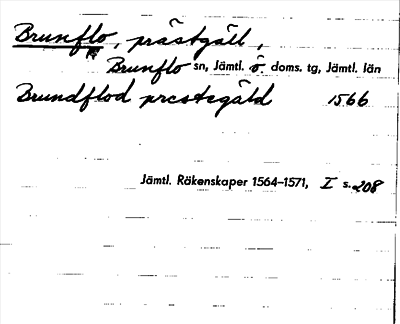 Brunflo, prästgäll,
Brunflo sn, Jämtl. ö. doms. tg, Jämtl. län
Brundflod prestegäld 1566
Jämtl. Räkenskaper 1564–1571, I s. 208